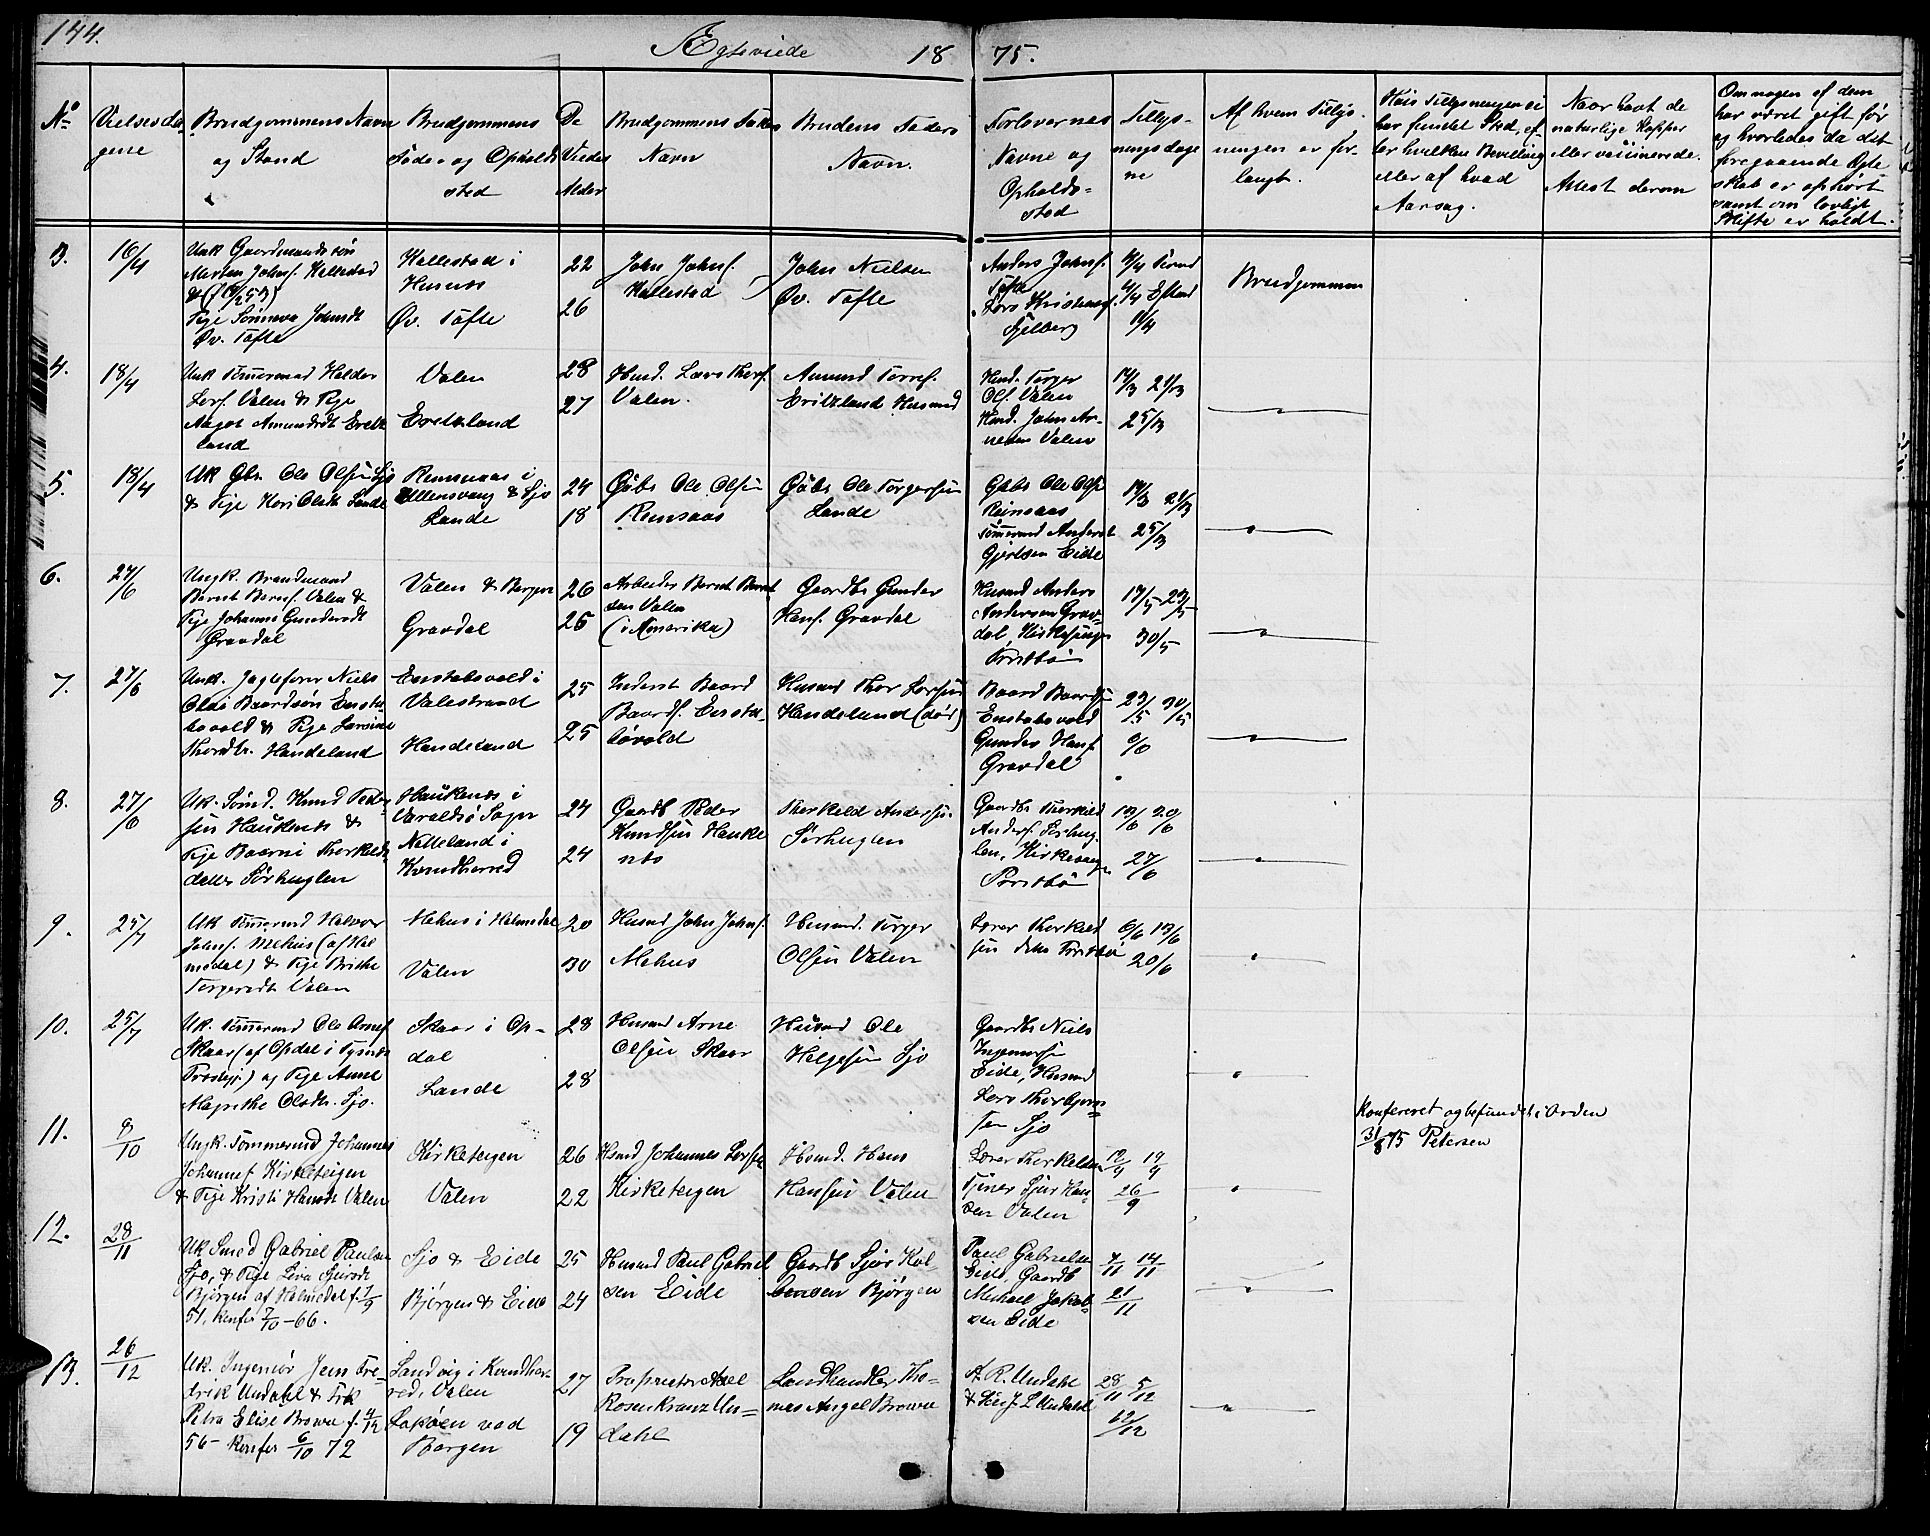 144.
Ægteviede 18 75.
No
Vielsesda
gene
Brudgommens Navn
og Stand
Brudgommens
Føde- og Opholds
sted
De
Viedes
Alder
Brudgommens Faders
Navn
Brudens Faders
Navn.
Forlovernes
Navne og
Opholds-
sted
Tillys-
ningsdage
ne
Af hvem Tillys-
ningen er for-
langt.
Hvis Tillysningen ei
har fundet Sted, ef-
ter hvilken Bevilling
eller af hvad
Aarsag.
Naar havt de
naturlige Kopper
eller vaccinerede.
Attest derom
Om nogen af dem
har været gift før
og hvorledes da det
foregaaende Egte
skab er ophørt
samt om lovligt
Skifte er holdt.
3.
16/4
Unk Gaardmandssøn
Morten Johnss. Hallestad
Pige Sønneva Johnsdt
Øv. Tofte
Hallestad i
Husnes
Øv. Tofte
22
26
John Johns.
Hallestad
John Nielsen
Øv. Tofte
Anders Johns.
Tofte
Lars Kristens.
Fjelberg
11/4
Brudgommen
4.
18/4
Unk Tømmermd Haldor
Lars. Valen & Pige
Aagot Amundsdt Ereks
land
Valen
Eriksland
28
27
Husmd. Lars Thors.
Valen.
Amund Torres.
Eriksland Husmd
Husmd. Torger
Ols. Valen
Husmd. John Ar-
nesen Valen
14/3 21/3
25/3
5.
18/4
Uk Gbr. Ole Olsen Sjo
& Pige Kari Olsdt Lande
Remsaas i
Ullensvang & Sjo
Lande
24
18
Gbr. Ole Olsen
Remsaas
Gbr. Ole Torgersen
Lande
Gbr Ole Olsn
Reinsaas
Tømmermd Anders
Gjertsen Eide
14/3 21/3
25/3
6.
27/6
Ungk. Brandmand
Bernt Berns. Valen &
Pige Johanne Gundersdt
Gravdal
Valen & Bergen
Gravdal
26
26
Arbeider Bernt Bernt
sen Valen
(i Amerika)
Gaardbr Gunder
Hans. Gravdal
Husmd Anders
Andersen Grav-
dal, Kirkesanger
Tørstbø
17/5 23/5
30/5
7.
27/6
Unk. Jagtefører Niels
Olai Baardsøn Ensta-
bovold & Pige Larsine
Thorsdtr. Handeland
Enstabovold i
Valestrand
Handeland
25
25
Inderst Baard
Baards. Ensta-
bovold
Husmd Thor Larsen
Handeland (død)
Baard Baards.
Enstabovold
Gunder Hans.
Gravdal
23/5 30/5
6/6
8.
27/6
Uk. Sømd. Knud Peder
sen Haukenes &
Pige Baarni Therkelds
datter Sørhuglen
Haukenes i
Varaldsø Sogn
Netteland i
Kvindherred
24
24
Gaardbr Peder
Knudsen Hauke
nes
Therkeld Andersen
Sørhuglen
Gaardbr Therkeld
Anders. Sørhug-
len, Kirkesanger
Tørstbø
13/6 20/6
27/6
9.
25/7
Uk Tømmermd Halvor
Johns. Mehus (af Hol
medal) & Pige Brithe
Torgersdt Valen
Mehus i Holmedal
Valen
20
30
Husmd John Johns.
Mehus
Husmd. Torger
Olsen Valen
Lærer Therkeld
sen
6/6 13/6
20/6
10.
25/7
Uk. Tømmermd Ole Arnes
Skaar (af Opdal i Tysnes
Prestegj.) og Pige Anne
Magrethe Olsdtr. Sjo.
Skaar i Op-
dal
Lande
28
28
Husmd Arne
Olsen Skaar
Husmd Ole
Helgesen Sjo
Gaardbr Niels
Ingemars
Eide, Husmd
Lars Thorbjørn
sen Sjo
11.
9/10
Ungk. Tømmermd Johannes
Johannes Kirketeigen
& Pige Kristi Hansdt Valen
Kirketeigen
Valen
26
22
Husmd Johannes Larsen
Kirketeigen
Husmd. Hans
Hansen Valen
Lærer Therkeldsen
Tjener Sjur Han-
sen Valen
12/9 19/9
26/9
Konfereret og befundet i Orden
31/8 75 Petersen
12.
28/11
Uk Smed Gabriel Paulsen
Sjo, & Pige Siva Sjursdt
Bjørgen af Holmedal f. 7/9
51, konfir 7/10-66.
Sjo & Eide
Bjørgen & Eide
25
24
Husmd Paul Gabriel
sen Eide
Gaardbr Sjur Kol-
bensen Bjørgen
Paul Gabrielsen
Eide, Gaardb
Michael Jakob-
sen Eide
7/11 14/11
21/11
13.
26/12
Uk. Ingeniør Jens Fre-
drik Undahl & Frk
Petra Elise Brown f. 4/12
56- konfir 6/10 72
Sandvig i Kvindher-
red, Valen
Laksøen ved
Bergen
27
19
Proprietær Axel
Rosenkranz Un-
dahl
Landhandler Tho-
mas Angel Brown
A. R. Undahl
& J. L Undahl
28/11 5/12
12/12